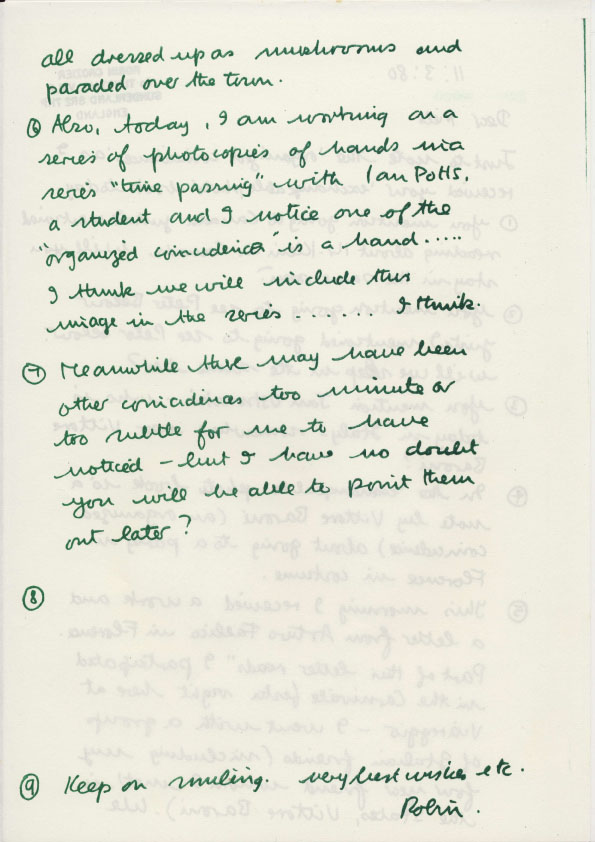 all dressed up as mushrooms and
paraded over the town.
⑥ Also, today, I am working on a
series of photocopies of hands in a
series "time passing" with Ian Potts,
a student and I notice one of the
"organized coincidence" is a hand.....
I think we will include this
image in the series ........ I think.
⑦ Meanwhile there may have been
other conicidences too minute or
too subtle for me to have
noticed – but I have no doubt
you will be able to point them
out later?
⑧
⑨ Keep on smiling. very best wishes etc.
Robin.